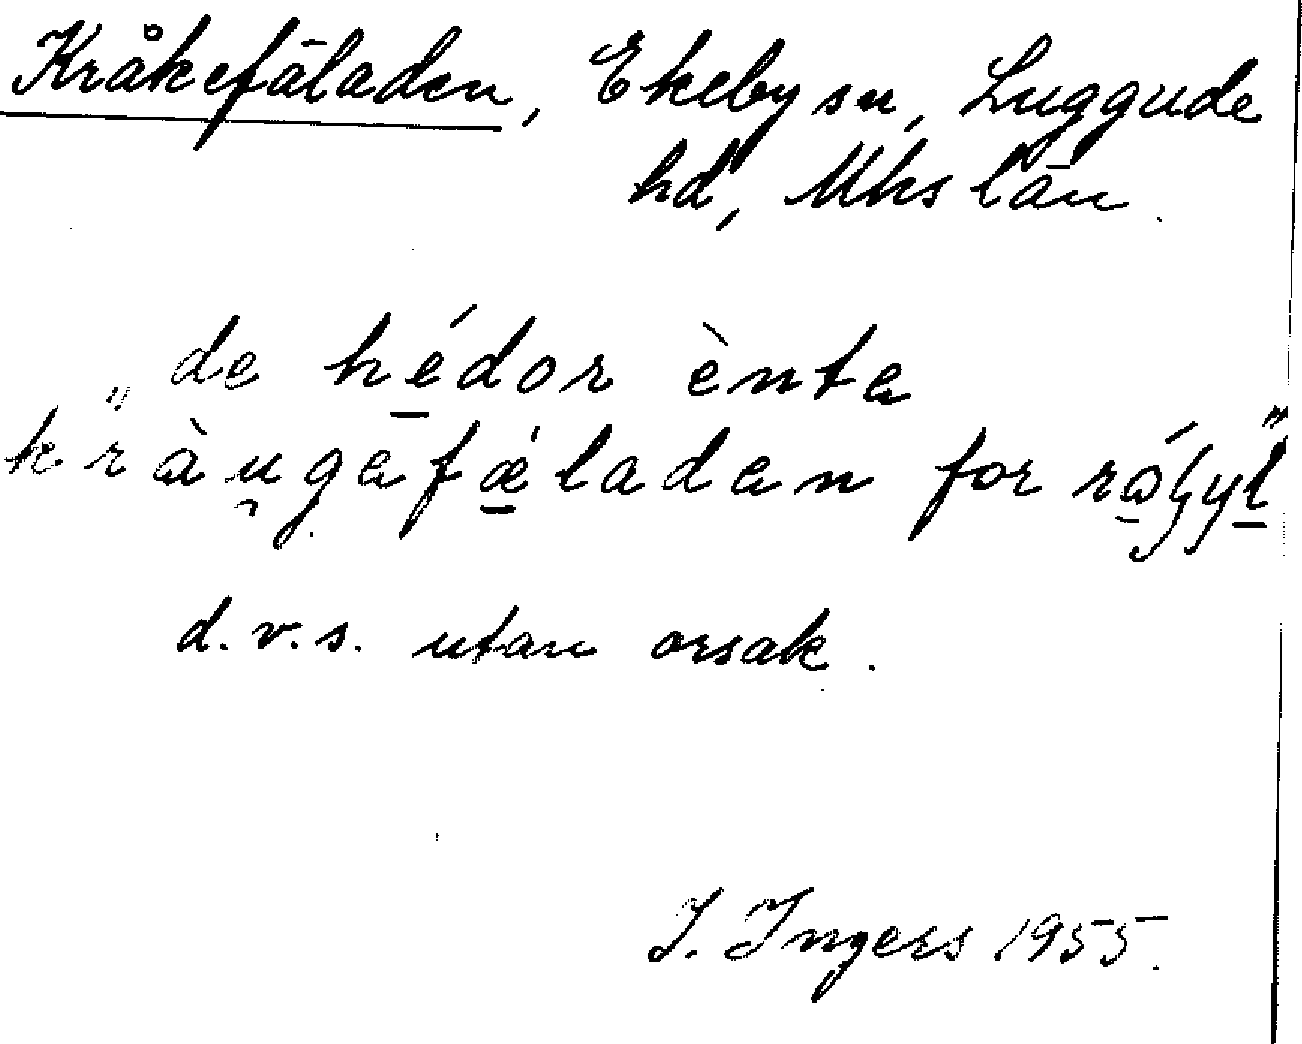 Kråkefäladen, Ekeby sn, Luggude
hd, Mhs län.
„de hé̲dor ènta
kràu̯gafǽ̲laden for
d.v.s. utan orsak.
I. Ingers 1955.